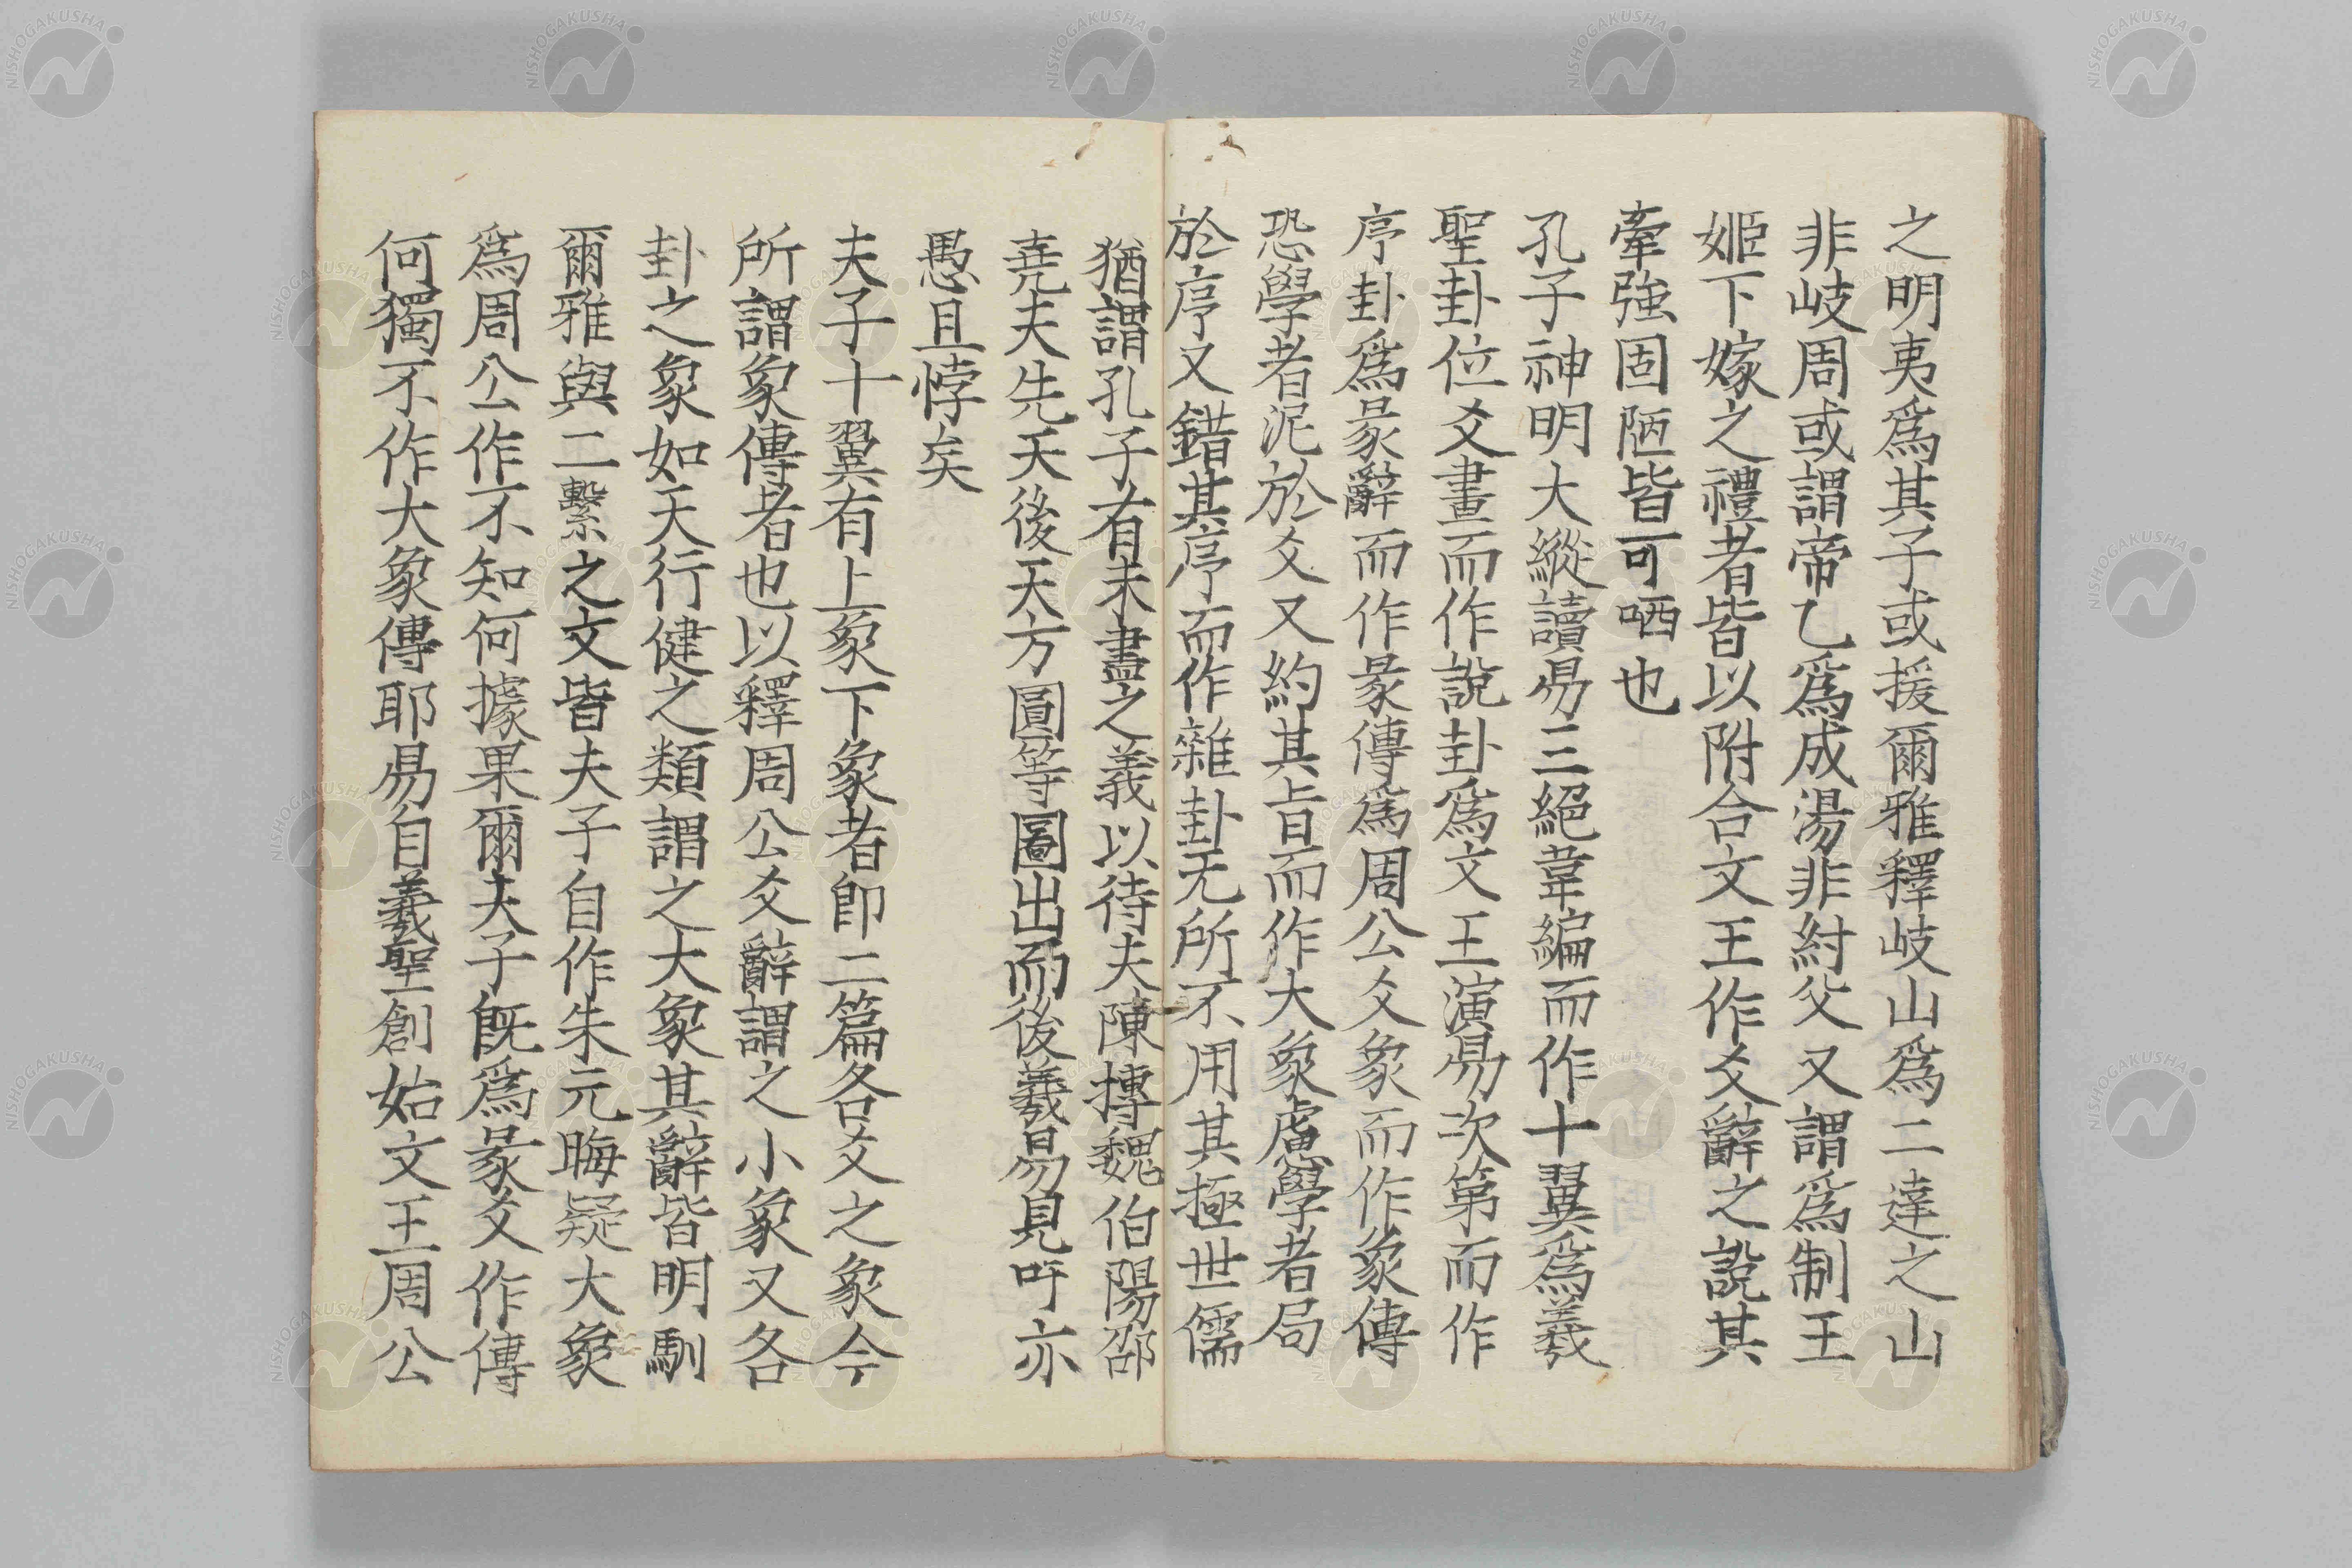 之明夷爲其子或援爾雅釋岐山爲二達之山
非岐周或謂帝乙爲成湯非紂父又謂爲制王
姬下嫁之禮者皆以附合文王作爻辭之說其
牽強固陋皆可哂也
孔子神明大縱讀易三絕韋編而作十翼爲羲
聖卦位爻畫而作說卦爲文王演易次第而作
序卦爲彖辭而作彖傳爲周公爻象而作象傳
恐學者泥於爻又約其旨而作大象慮學者局
於序又錯其序而作雜卦无所不用其極世儒
猶謂孔子有未盡之義以待夫陳摶魏伯陽邵
堯夫先天後天方圓等圖出而後羲易見吁亦
愚且悖矣
夫子十翼有上象下象者即二篇各爻之象今
所謂象傳者也以釋周公爻辭謂之小象又各
卦之象如天行健之類謂之大象其辭皆明馴
爾雅與二繫之文皆夫子自作朱元晦疑大象
爲周公作不知何據果爾夫子既爲彖爻作傳
何獨不作大象傳耶易自羲聖創始文王周公
NISHOGAKUSHA